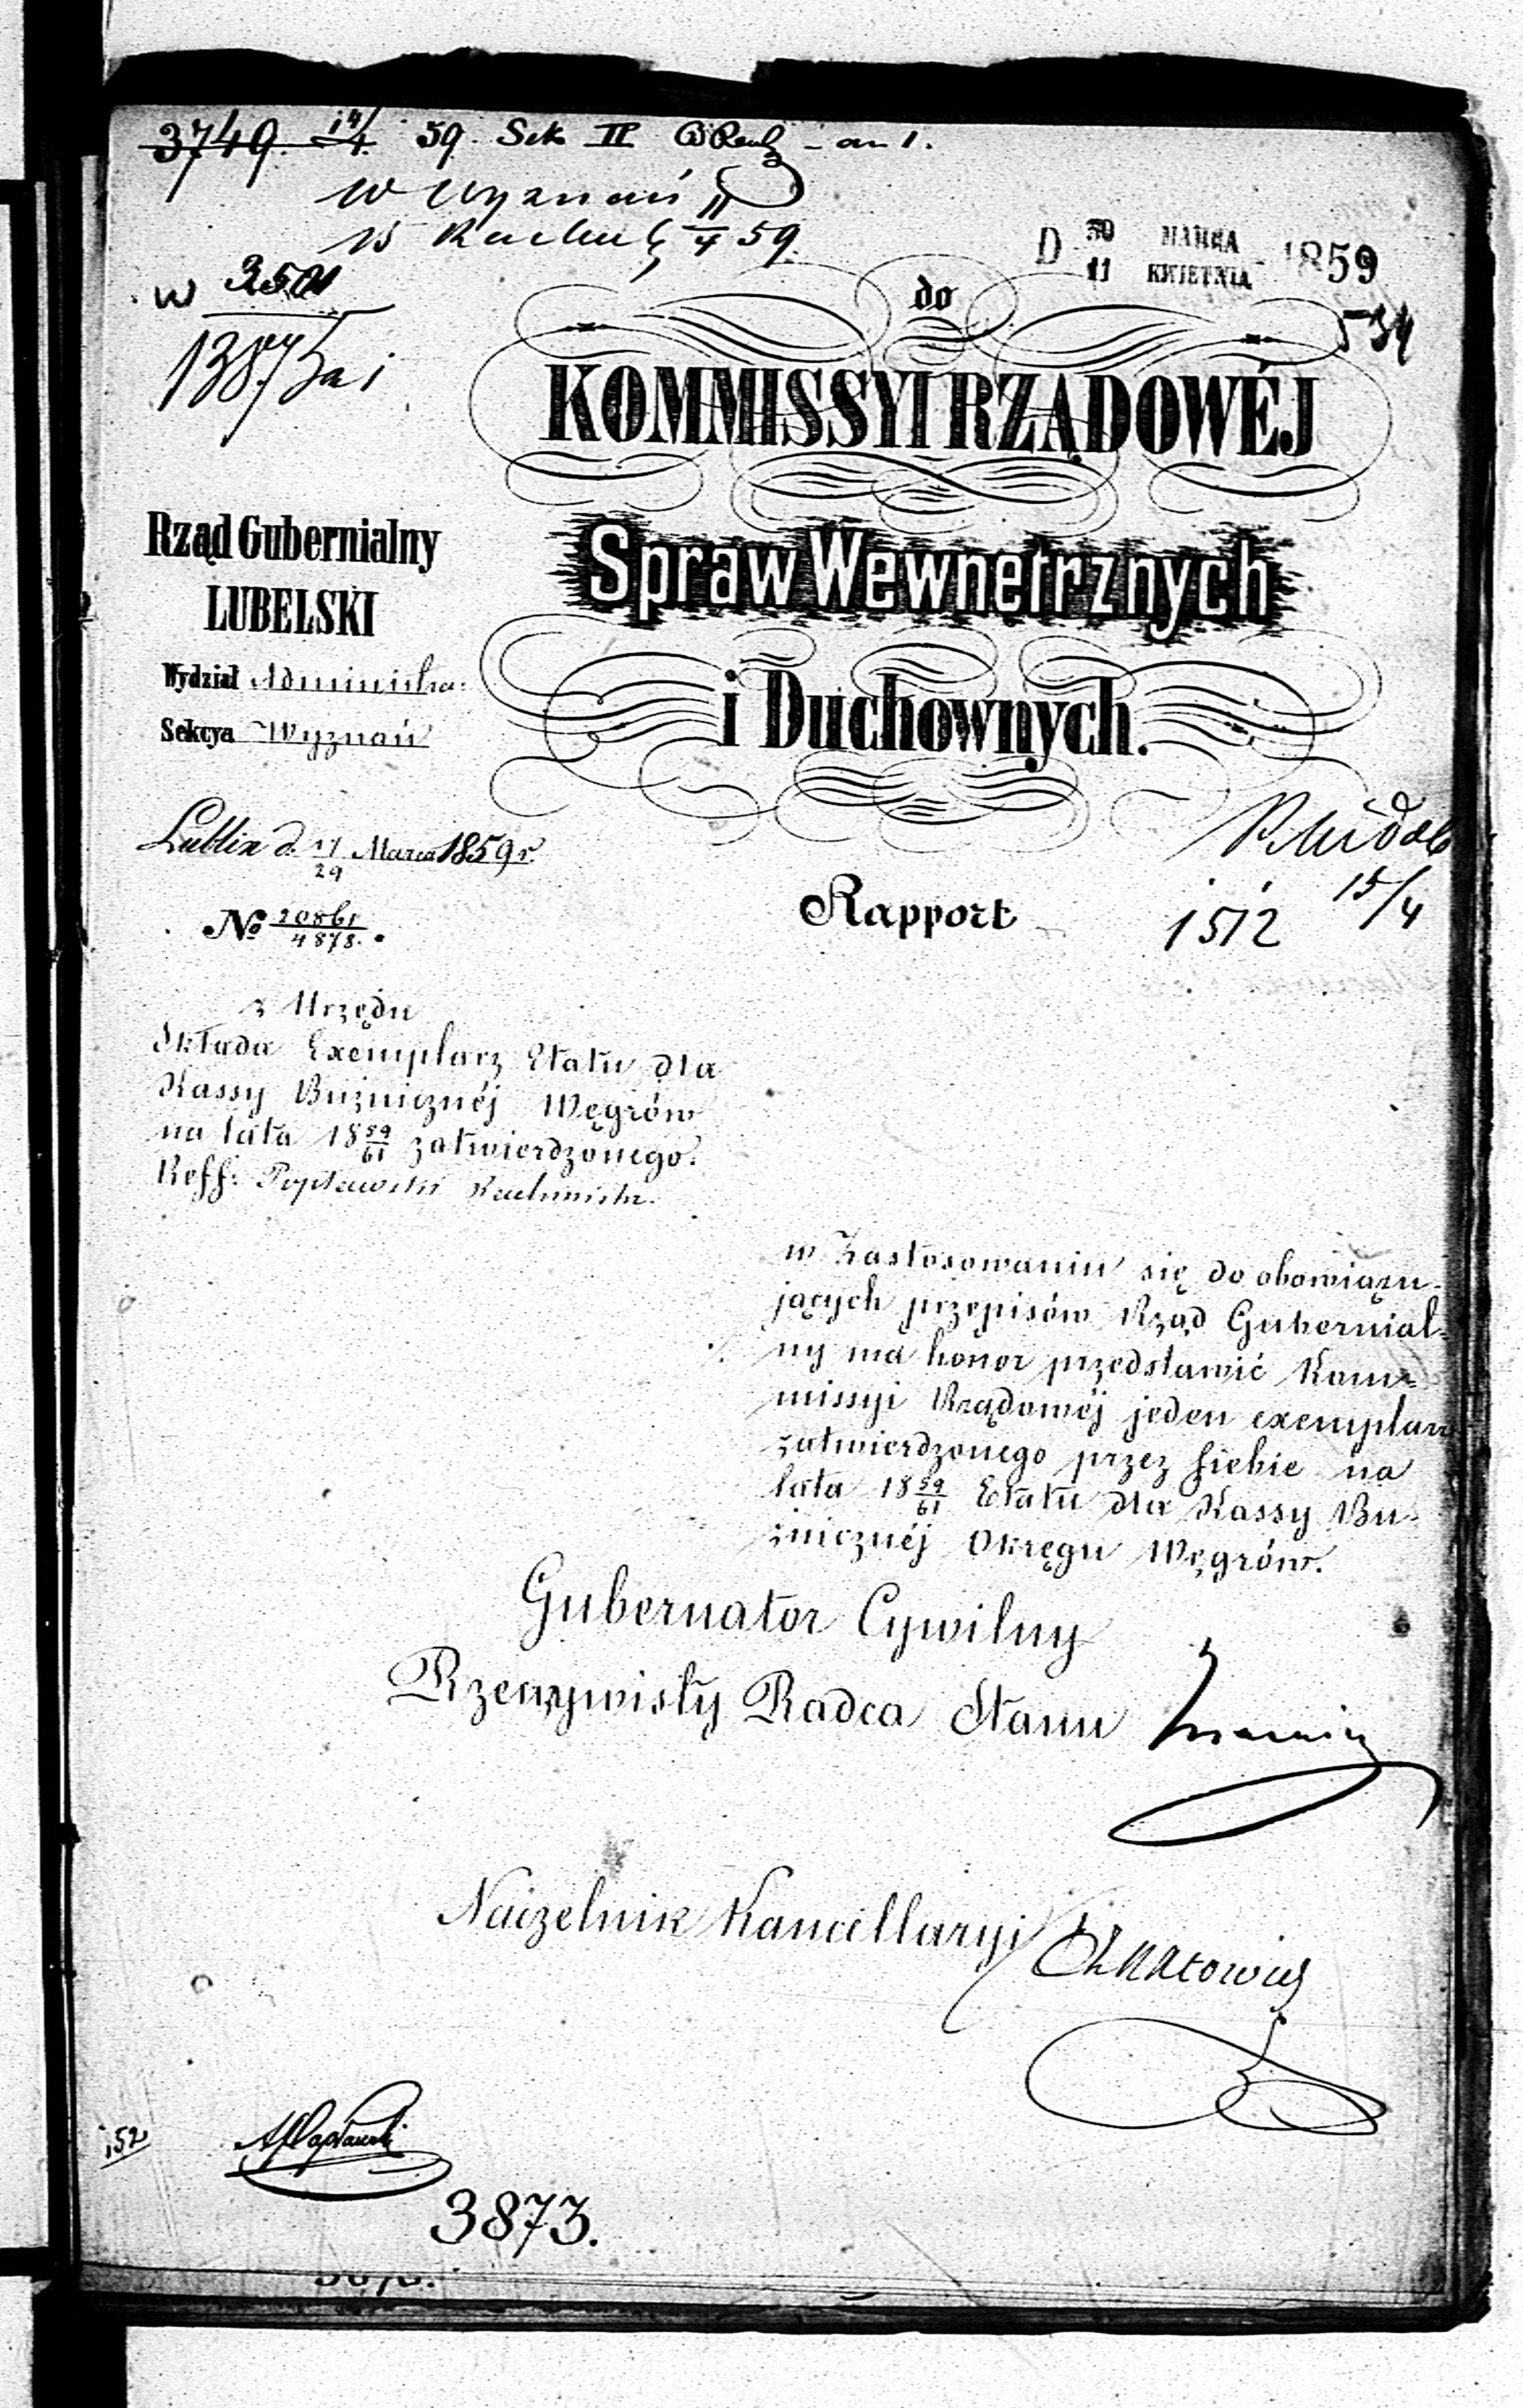 3749. 14/4 59. Sek II
w Wyznań
11/4 59.
w 3501
D 30/11 MARCA KWIETNIA 1859
534
do
KOMMISSYI RZĄDOWÉJ
Spraw Wewnętrznych
i Duchownych.
Rząd Gubernialny
LUBELSKI
Wydział Administra:
Sekcya Wyznań
Lublin d. 17/29 Marca 1859 r.
№ 20861/4878.
15/4
1512
Rapport
z Urzędu
Składa Exemplarz Etatu dla
Kassy Bużnicznéj Węgrów
na lata 18 59/61 zatwierdzonego.
Reff: Popławski Rachmistr.
w Zastosowaniu się do obowiązu-
jących przepisów Rząd Gubernial-
ny ma honor przedstawić Kom-
missyi Rządowéj jeden exemplarz
zatwierdzonego przez siebie na
lata 18 59/61 Etatu dla Kassy Bu-
żnicznéj Okręgu Węgrów.
Gubernator Cywilny
Rzeczywisty Radca Stanu
Naczelnik Kancellaryi
152
3873.